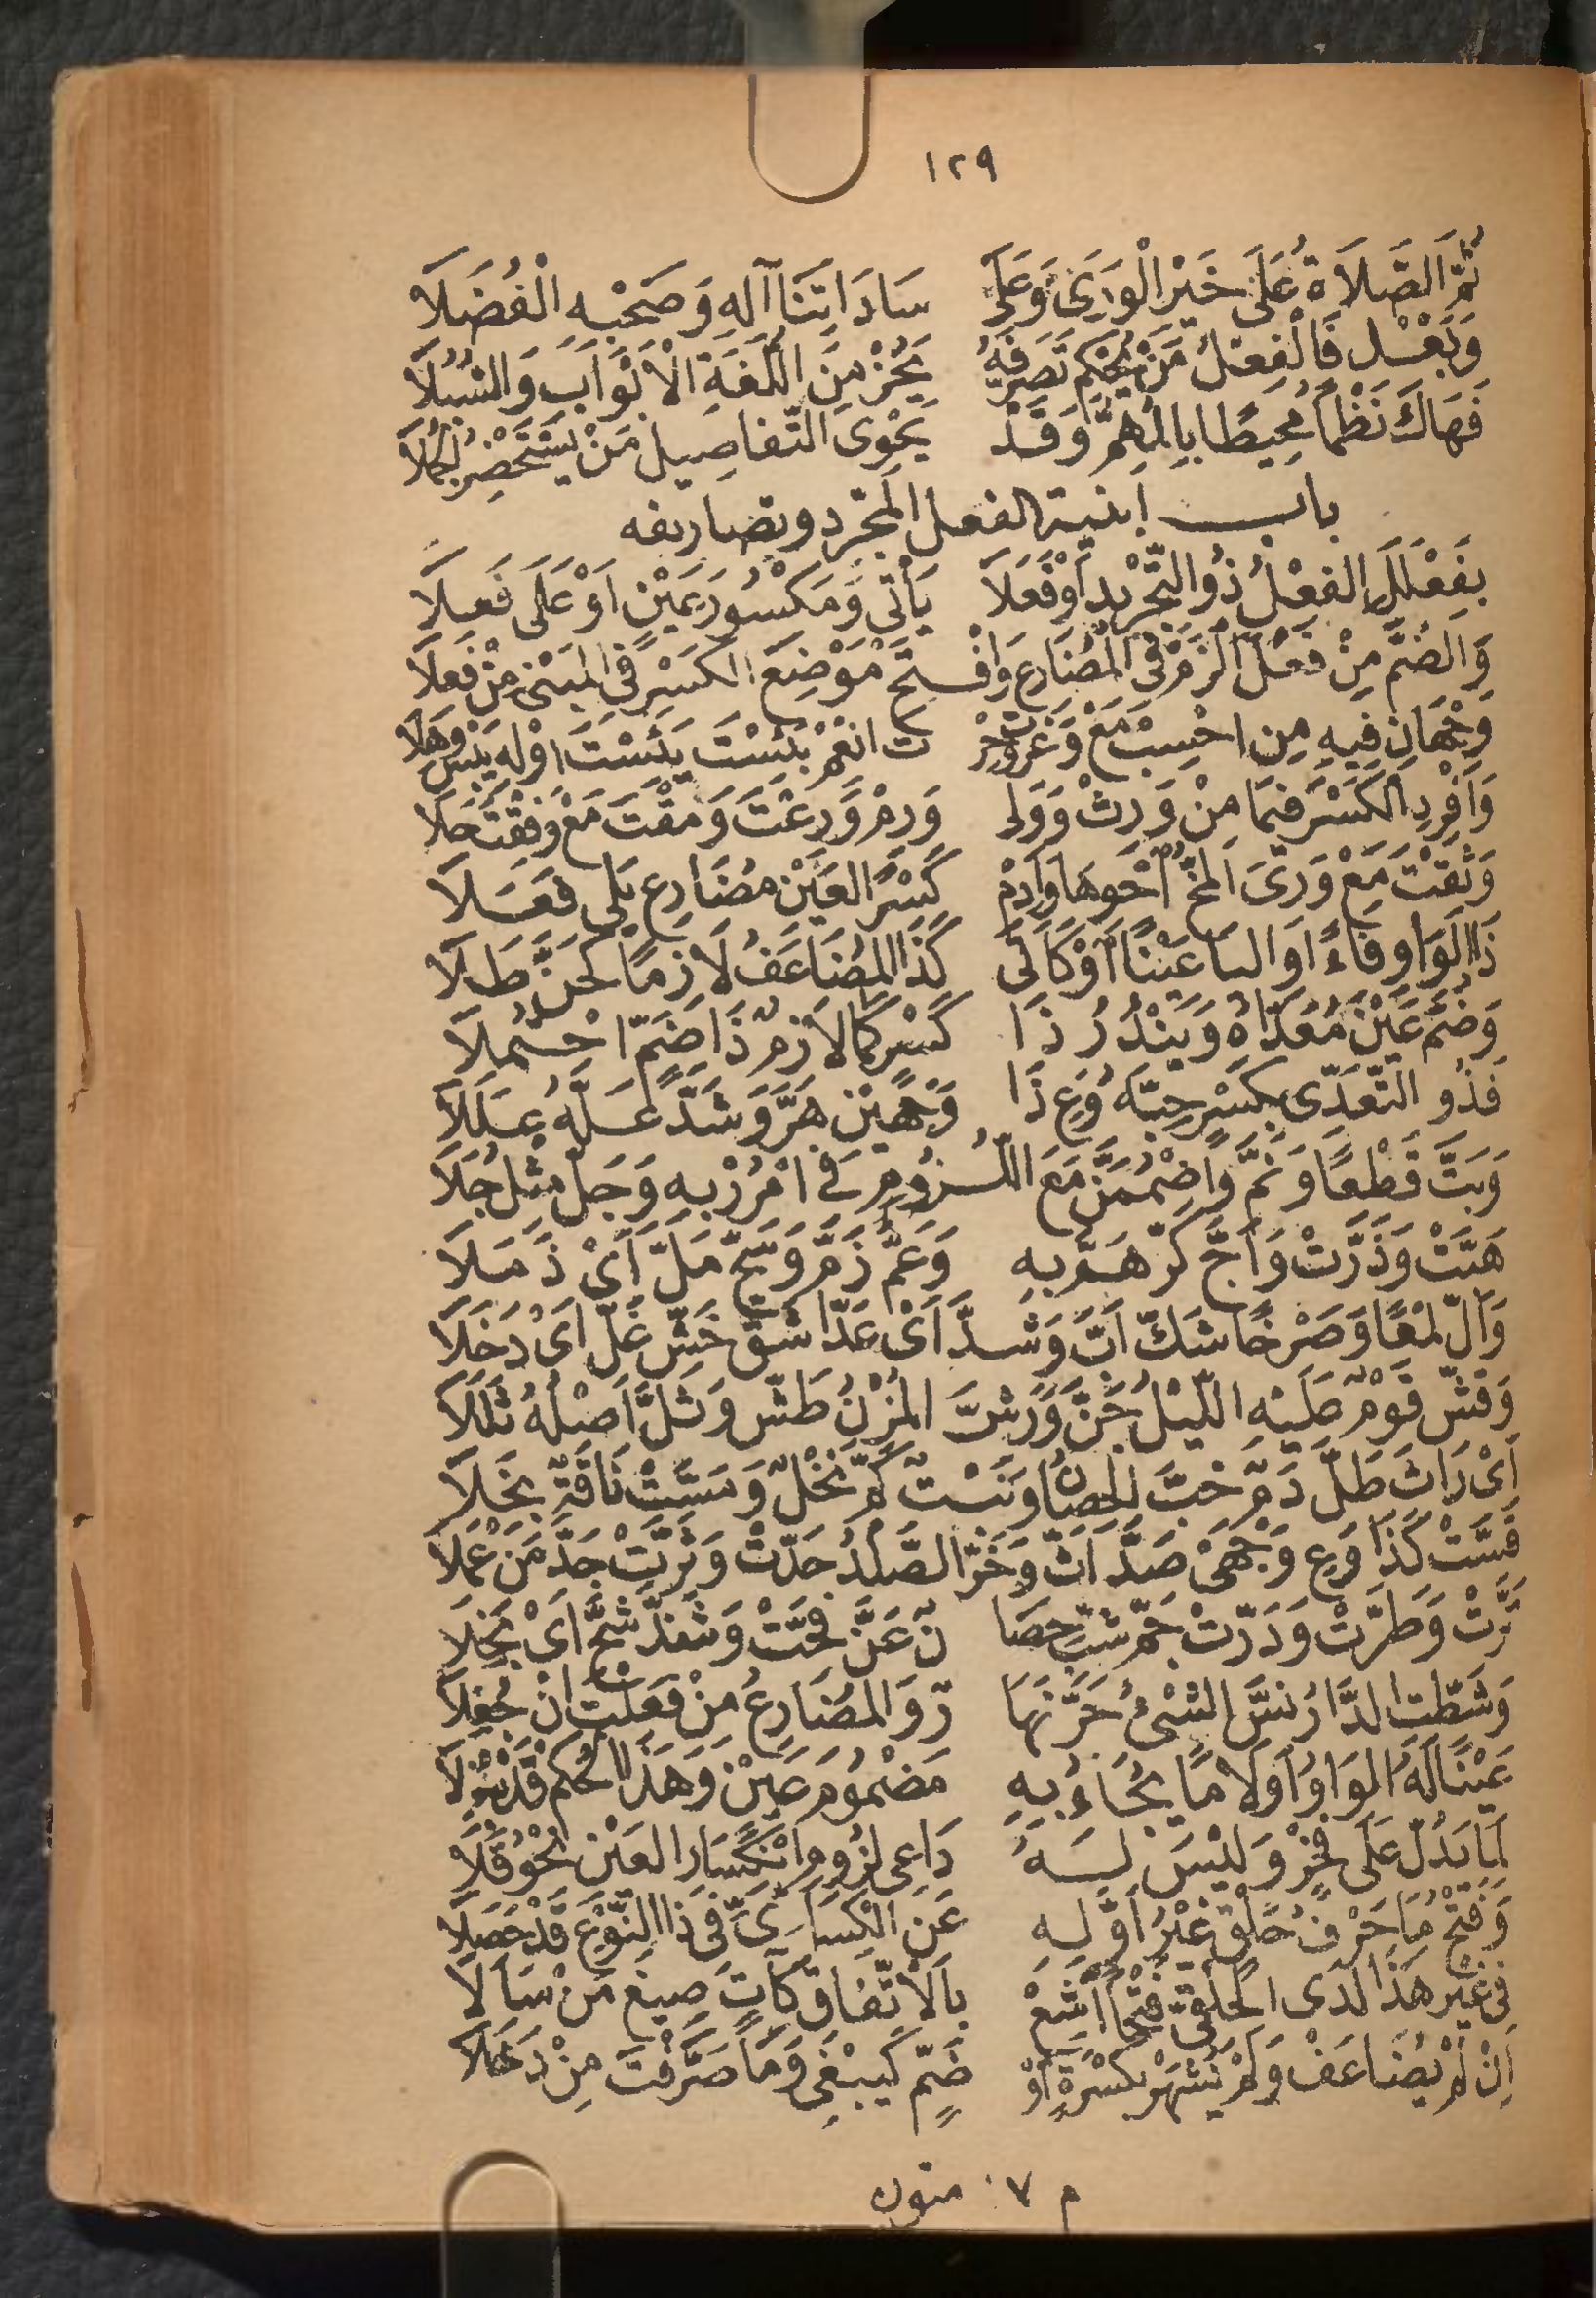 ١٢٩
ثُمَّ الصَّلَاةُ عَلَى خَيْرِ الْوَرَى وَعَلَى سَادَاتِنَا آلِهِ وَصَحْبِهِ الْفُضَلَا
وَبَعْدُ فَالْفِعْلُ مَنْ يُحْكِمْ تَصَرُّفَهُ يَحُزْ مِنَ اللُّغَةِ الْأَبْوَابَ وَالسُّبُلَا
فَهَاكَ نَظْمًا مُحِيطًا بِالْمُهِمِّ وَقَدْ يَحْوِى التَّفَاصِيلَ مَنْ يَسْتَحْضِرُ الْجُمَلَا
باب ابنية الفعل المجرد وتصاريفه
بِفَعْلَلَ الفِعْلُ ذُو التَّجْرِيدِ أَوْ فَعُلَا يَأْتِى وَمَكْسُورَ عَيْنٍ اَوْ عَلَى فَعَلَا
وَالضَّمَّ مِنْ فَعُلَ الْزَمْ فِى الْمُضَارِعِ وَافْتَحْ مَوْضِعَ الْكَسْرِ فِى الْمَبْنِىِّ مِنْ فَعِلَا
وَجْهَانِ فِيهِ مِنِ احْسِبْ مَعْ وَغِرْتَ وَحِرْ تَ انْعِمْ بَئِسْتَ يَئِسْتَ اوْلَهْ يَبِسْ وَهِلَا
وَأَفْرِدِ الْكَسْرَ فِيمَا مِنْ وَرِثْ وَوَلِى وَرِمْ وَرِعْتَ وَمِقْتَ مَعْ وَفِقْتَ حَلَا
وَثِقْتَ مَعْ وَرِىَ الْمُخُّ احْوِهَا وَأَدِمْ كَسْرًا لِعَيْنِ مُضَارِعٍ يَلِى فَعَلَا
ذَا الْوَاوِ فَاءً اَوِ الْيَا عَيْنًا أَوْ كَأَتَى كَذَا الْمُضَاعَفُ لَازِمًا كَحَنَّ طَلَا
وَضُمَّ عَيْنَ مُعَدَّاهُ وَيَنْدُرُ ذَا كَسْرٍ كَمَا لَازِمٌ ذَا ضَمٍّ احْتُمِلَا
فَذُو التَّعَدِّى بِكَسْرٍ حَبَّهُ وَعِ ذَا وَجْهَيْنِ هَرَّ وَشَدَّ عَلَّهُ عَلَلَا
وَبَتَّ قَطْعًا وَنَمَّ وَاضْمُمَنَّ مَعَ اللُّزُومِ فِى امْرُرْ بِهِ وَجَلَّ مِثْلُ جَلَا
هَبَّتْ وَذَرَّتْ وَأَجَّ كَرَّ هَمَّ بِهِ وَعَمَّ زَمَّ وَسَحَّ مَلَّ أَىْ ذَمَلَا
وَأَلَّ لَمْعًا وَصَرْخًا شَكَّ اَبَّ وَشَدَّ اَىْ عَدَا شَقَّ خَشَّ غَلَّ اَىْ دَخَلَا
وَقَشَّ قَوْمٌ عَلَيْهِ اللَّيْلُ جَنَّ وَرَشَّ الْمُزْنُ طَشَّ وَثَلَّ اَصْلُهُ ثَلَلَا
اَىْ رَاثَ طَلَّ دَمٌ خَبَّ الْحِصَانُ وَنَبْتٌ كَمَّ نَخْلٌ وَعَسَّتْ نَاقَةٌ بِخَلَا
قَسَّتْ كَذَا وَعِ وَجْهَىْ صَدَّ اَثَّ وَخَرَّ الصَّلْدُ حَدَّتْ وَثَرَّتْ جَدَّ مَنْ عَمِلَا
تَرَّتْ وَطَرَّتْ وَدَرَّتْ جَمَّ شَبَّ حِصَا نٌ عَنَّ فَحَّتْ وَشَذَّ شَحَّ اَىْ بَخِلَا
وَشَطَّتِ الدَّارُ نَسَّ الشَّىْءُ حَرَّ نَهَا رٌ وَالْمُضَارِعُ مِنْ فَعَلْتُ اِنْ جُعِلَا
عَيْنًا لَهُ الْوَاوُ اَوْ لَامًا يُجَاءُ بِهِ مَضْمُومَ عَيْنٍ وَهَذَا الْحُكْمُ قَدْ بُذِلَا
لِمَا يَدُلُّ عَلَى فَخْرٍ وَلَيْسَ لَهُ دَاعِى لُزُومِ انْكِسَارِ الْعَيْنِ نَحْوُ قَلَا
وَفَتْحُ مَا حَرْفُ حَلْقٍ غَيْرُ أَوَّلِهِ عَنِ الْكِسَائِىِّ فِى ذَا النَّوْعِ قَدْ حَصَلَا
فِى غَيْرِ هَذَا لَدَى الْحَلْقِىِّ فَتْحًا أَشِعْ بِالْاِتِّفَاقِ كَآتٍ صِيغَ مِنْ سَأَلَا
اِنْ لَمْ يُضَاعَفْ وَلَمْ يُشْهَرْ بِكَسْرَةٍ أَوْ ضَمٍّ كَيَبْغِى وَمَا صَرَّفْتَ مِنْ دَخَلَا
م ٧ متون